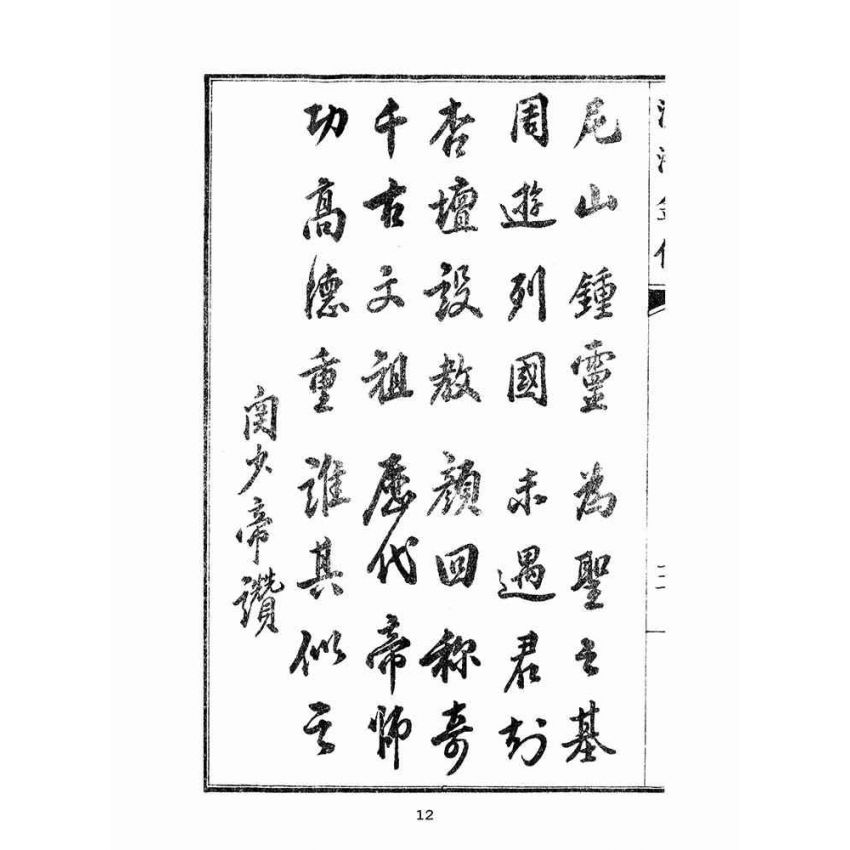 尼山鍾靈 為聖之基
周遊列國 未遇君
杏壇設教 顏回称奇
千古文祖 歷代帝師
功高德重 誰其似
関少帝讚
12